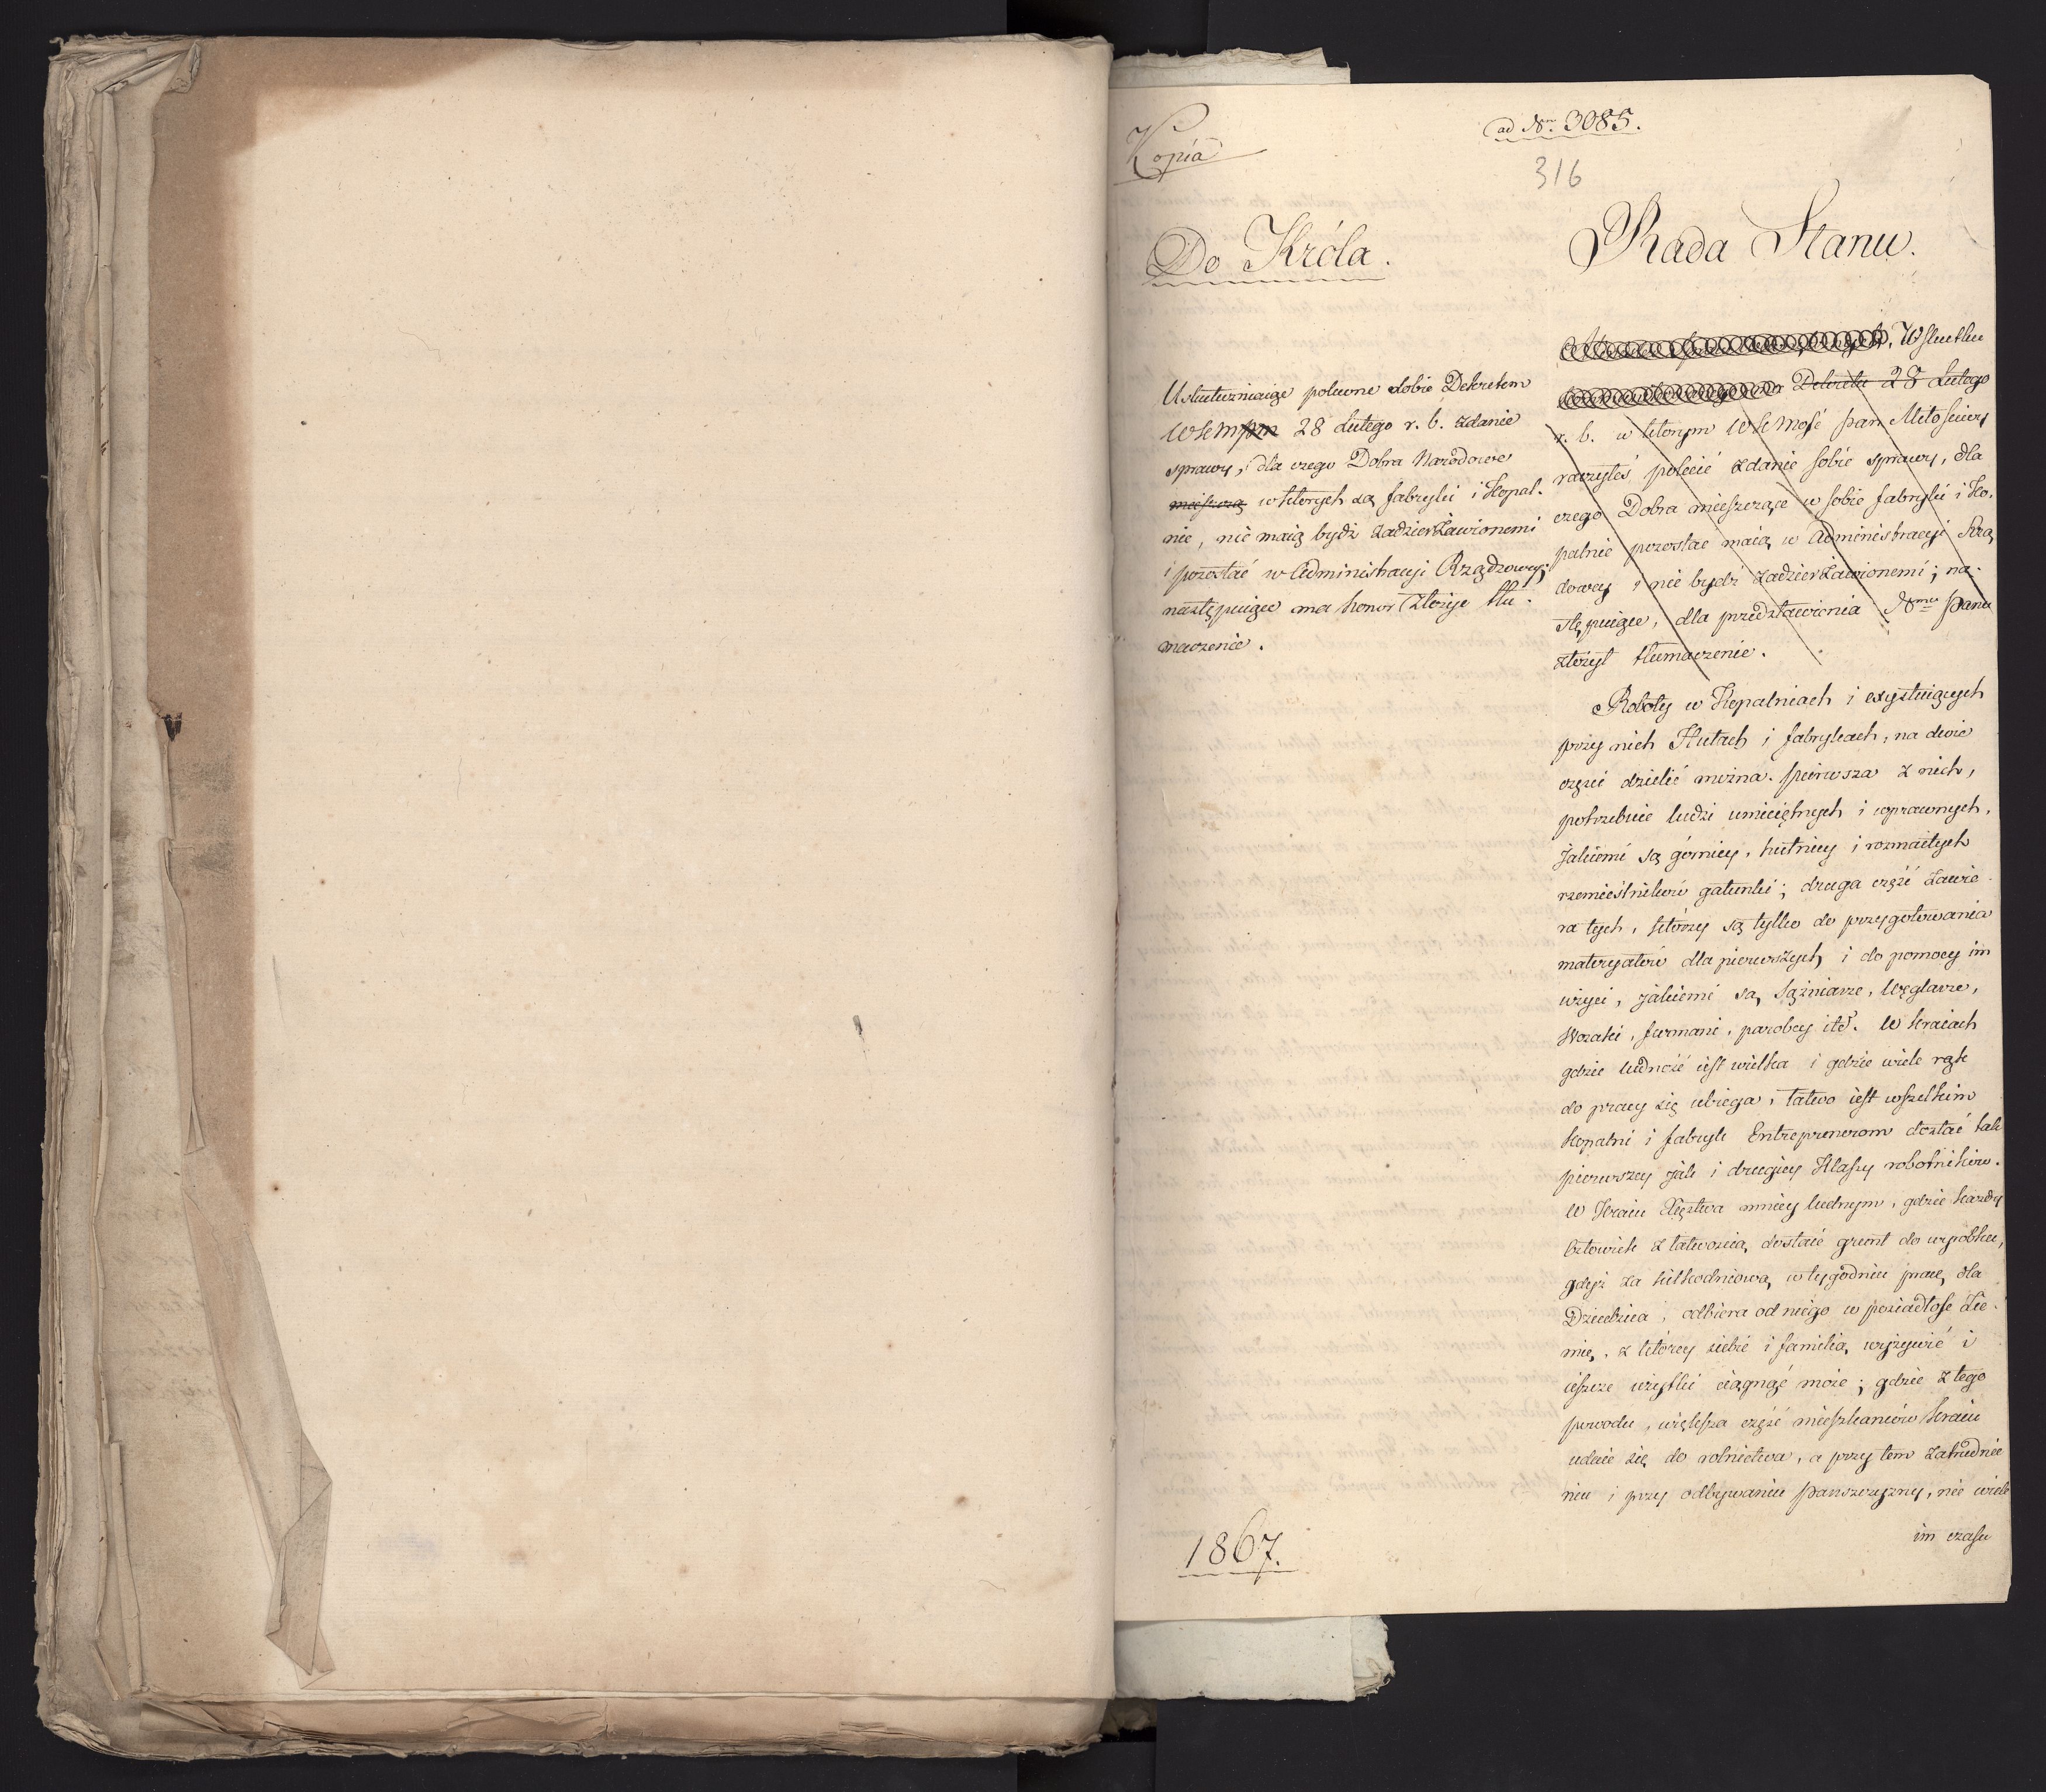 Kopia
ad Nrm 3085.
316
Do Króla.
Rada Stanu.
Uskuteczniaiąc polecone sobie Dekretem
WKMpm 28 Lutego r. b. zdanie
sprawy, dla czego Dobra Narodowe
mieszczą w których są fabryki i Kopal-
nie, nie maią bydź zadzierżawionemi
i pozostać w Administracyi Rządzowey;
następuiące ma honor złożyć tłu-
maczenie.
Wskutku
Dekretu 28 Lutego
r. b. w którym WKMość Pan Miłościwy
raczyłeś polecić zdanie sobie sprawy, dla
czego Dobra mieszczące w sobie fabryki i Ko-
palnie pozostać maią w Administracyi Rzą
dowey i nie bydź zadzierżawionemi; na-
stępuiące, dla przedstawienia Nmu Panu
złożył tłumaczenie.
Roboty w Kopalniach i exystuiących
przy nich Hutach i fabrykach, na dwie
części dzielić można. pierwsza z nich,
potrzebuie ludzi umieiętnych i wprawnych,
Jakiemi są górnicy, hutnicy i rozmaitych
rzemieślników gatunki; druga część zawie-
ra tych, którzy są tylko do przygotowania
materyałów dla pierwszych i do pomocy im
użyci, jakiemi są Sążniarze, Węglarze,
Wozaki, furmani, parobcy itd. W Kraiach
gdzie ludność iest wielka i gdzie wiele rąk
do pracy się ubiega, łatwo iest wszelkim
Kopalni i fabryk Entreprenerom dostać tak
pierwszey jak i drugiey Klassy robotników.
W Kraiu Xięstwa mniey ludnym, gdzie każdy
człowiek z łatwością dostaie grunt do wyrobku,
gdyż za kilkodniową w tygodniu pracę dla
Dziedzica, odbiera od niego w posiadłość Zie-
mię, z którey siebie i familią wyżywić i
ieszcze użytki ciągnąć może; gdzie z tego
powodu, większa część mieszkańców kraiu
udaie się do rolnictwa, a przy tem zatrudnie
niu i przy odbywaniu Pańszczyzny, nie wiele
im czasu
1867.